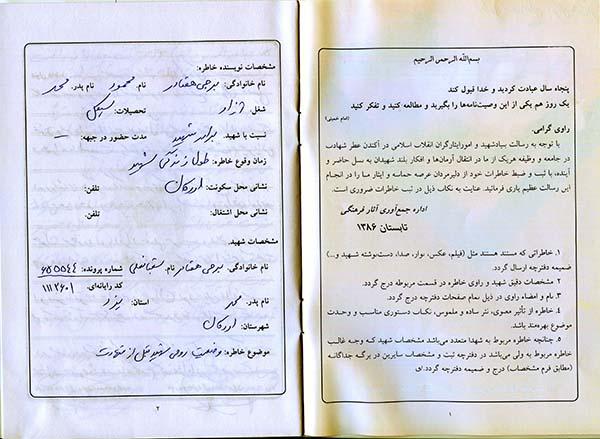 بسم‌الله الرحمن الرحیم
پنجاه سال عبادت کردید و خدا قبول کند
یک روز هم یکی از این وصیت‌نامه‌ها را بگیرید و مطالعه کنید و تفکر کنید
(امام خمینی)
راوی گرامی،
با توجه به رسالت بنیادشهید و امورایثارگران انقلاب اسلامی در آکندن عطر شهادت
در جامعه و وظیفه هریک از ما در انتقال آرمان‌ها و افکار بلند شهیدان به نسل حاضر و
آینده، با ثبت و ضبط خاطرات خود از دلیرمردان عرصه حماسه و ایثار ما را در انجام
این رسالت عظیم یاری فرمائید. عنایت به نکات ذیل در ثبت خاطرات ضروری است.
اداره جمع‌آوری آثار فرهنگی
تابستان ۱۳۸۶
۱. خاطراتی که مستند هستند مثل (فیلم، عکس، نوار، صدا، دست‌نوشته شهید و...)
ضمیمه دفترچه ارسال گردد.
۲. مشخصات دقیق شهید و راوی خاطره در قسمت مربوطه درج گردد.
۳. نام و امضاء راوی در ذیل تمام صفحات دفترچه درج گردد.
۴. خاطره از تأثیر معنوی، نثر ساده و ملموس، نکات دستوری مناسب و وحدت
موضوع بهره‌مند باشد.
۵. چنانچه خاطره مربوط به شهدا متعدد می‌باشد مشخصات شهید که وجه غالب
خاطره مربوط به ولی می‌باشد در دفترچه ثبت و مشخصات سایرین در برگه جداگانه
(مطابق فرم مشخصات) درج و ضمیمه دفترچه گردد.
۱
مشخصات نویسنده خاطره:
نام خانوادگی: میرجی هفتادر نام: محمود نام پدر: محمد
شغل: آزاد تحصیلات: سیکل
نسبت با شهید: برادر شهید مدت حضور در جبهه: —
زمان وقوع خاطره: طول زندگی شهید
نشانی محل سکونت: اردکان تلفن:
نشانی محل اشتغال: تلفن:
مشخصات شهید:
نام خانوادگی: میرجی هفتادر نام: شماره پرونده: ۶۵۵۵۴۴
کد رایانه‌ای: ۱۱۱۲۶۰۱
نام پدر: محمد استان: یزد
شهرستان: اردکان
موضوع خاطره: وضعیت روحی شهید قبل از شهادت
۲